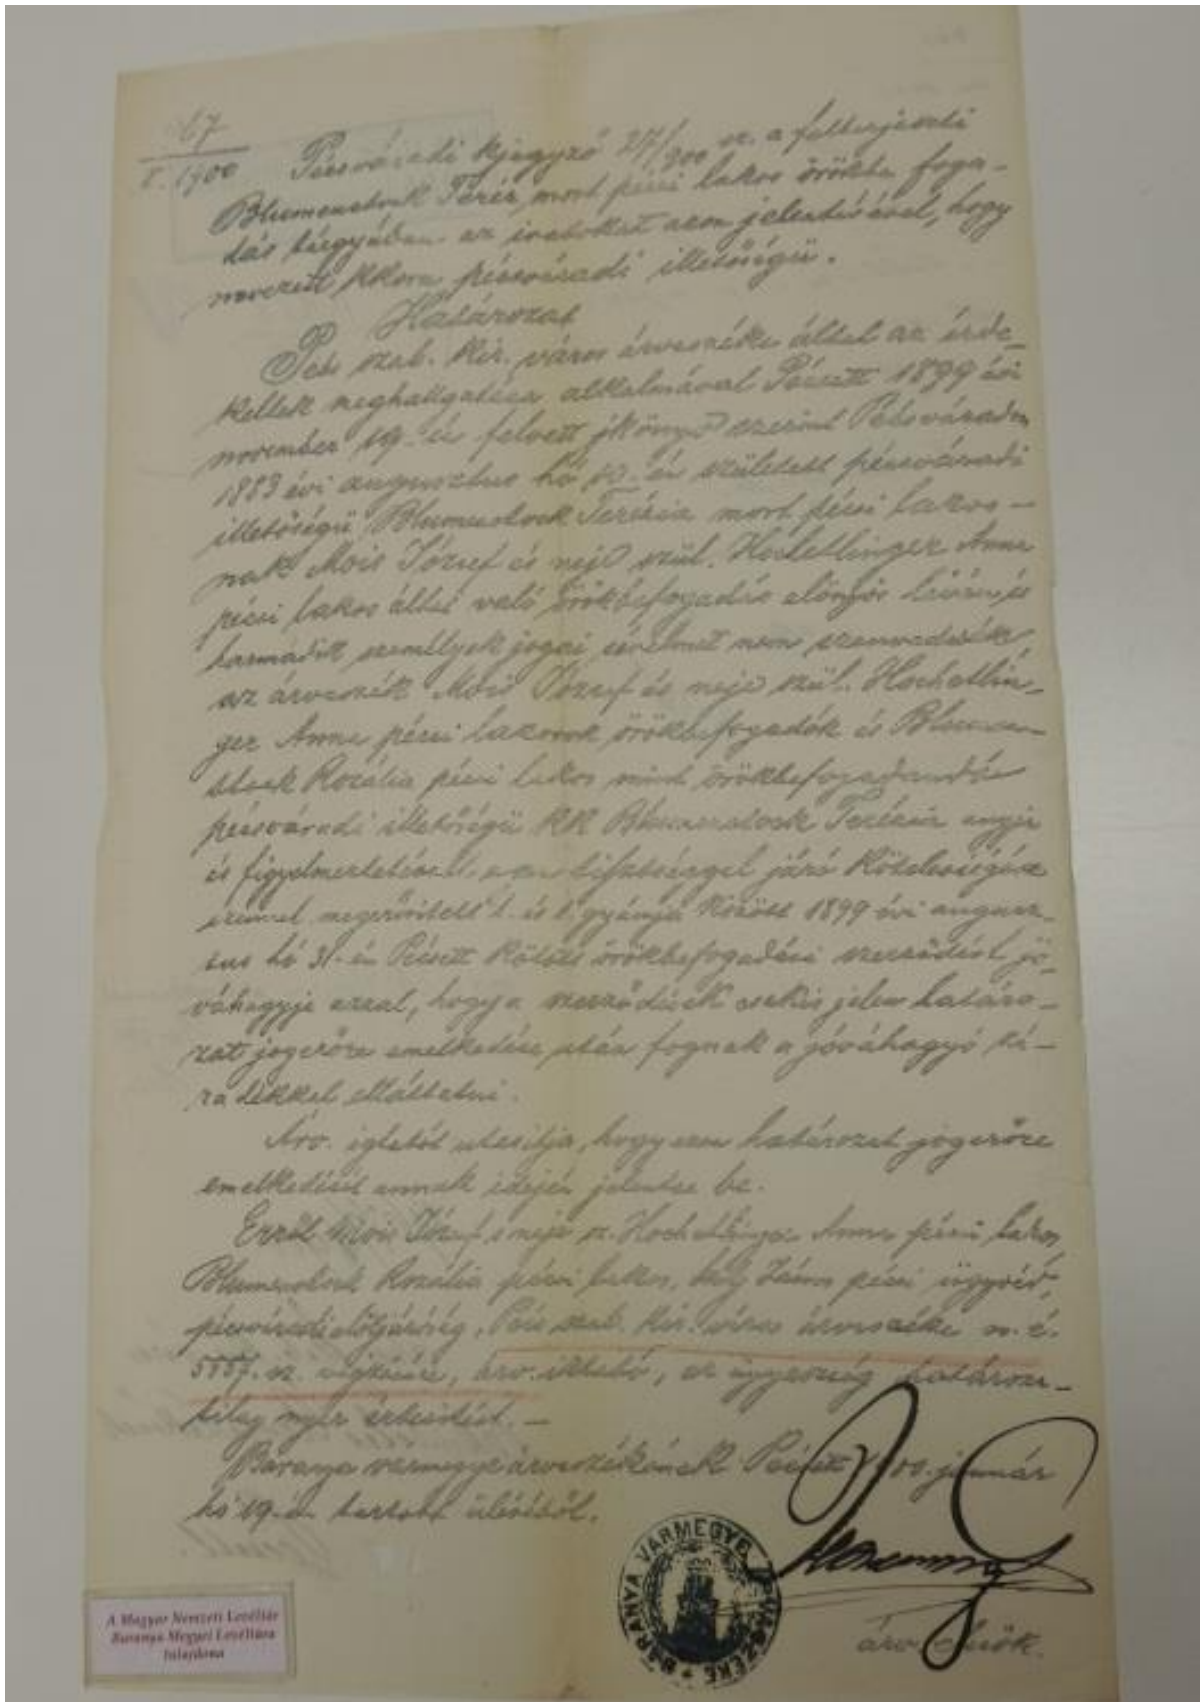 67
1900
Pécsváradi kjegyző 27/900 sz. a felterjeszti
Blumenstock Teréz mort pécsi lakos örökbe foga-
dás tárgyában az iratokat azon jelentésével, hogy
nevezett kkorú pécsváradi illetőségű.
Határozat
Pécs szab. kir. város árvaszéke által az érde-
keltek meghallgatása alkalmával Pécsett 1899 évi
november 19-én felvett jkönyv szerint Pécsváradon
1883 évi augusztus hó én született pécsváradi
illetőségű Blumenstock Terézia mort pécsi lakos-
nak Mois József és neje szül. Hochetlinger Anna
pécsi lakos által való örökbefogadás előnyös lévén és
harmadik személyek jogai sérelmet nem szenvedvén
az árvaszék Mois József és neje szül. Hochetlin-
ger Anna pécsi lakosok örökbefogadók és Blumen-
stock Rozália pécsi lakos mint örökbefogadandó
pécsváradi illetőségű kk Blumenstock Terézia anyja
és figyelmeztetéssel ezen tisztséggel járó kötelességére
ezennel megerősített t. és t. gyámja között 1899 évi augusz-
tus hó 31-én Pécsett kötött örökbefogadási szerződést jó-
váhagyja azzal, hogy a szerződések csakis jelen határo-
zat jogerőre emelkedése után fognak a jóváhagyó zá-
radékkal elláttatni.
Árv. iktatót utasítja, hogy ezen határozat jogerőre
emelkedését annak idején jelentse be.
Erről Mois József s neje sz. Hochetlinger Anna pécsi lakos
Blumenstock Rozália pécsi lakos, János pécsi ügyvéd,
pécsváradi elöljáróság, Pécs szab. kir. város árvaszéke m. é.
sz. végzésére, árv. iktató, az ügyészség határozati-
lag nyer értesítést. -
Baranya vármegye árvaszékének Pécsett 1900. január
hó 19-én tartott üléséből.
BARANYA VÁRMEGYE ÁRVASZÉKE
árv. elnök.
A Magyar Nemzeti Levéltár
Baranya Megyei Levéltára
tulajdona